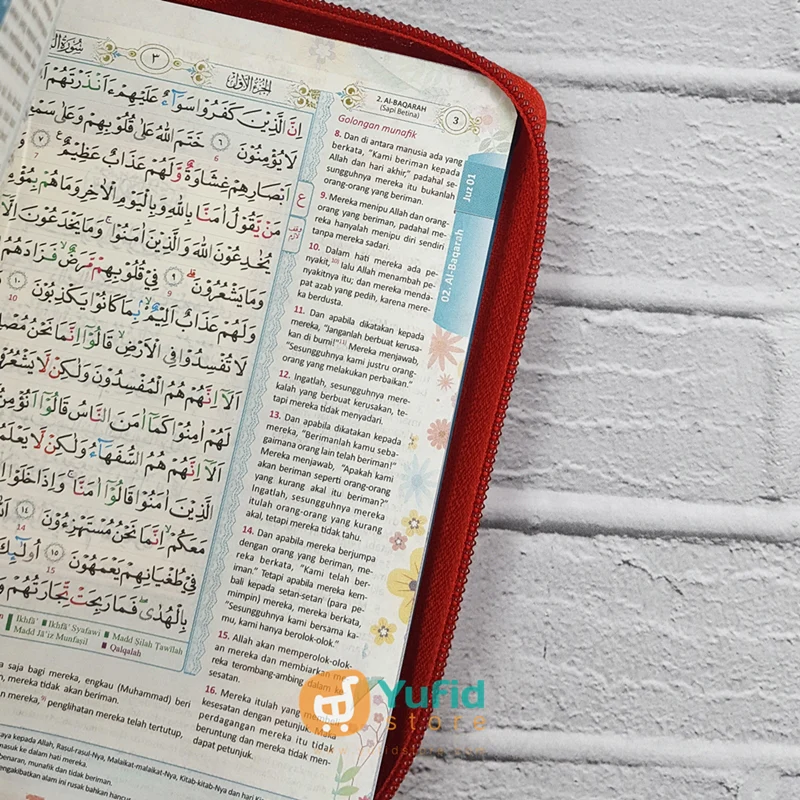 ٣
الجزء الأول
2. Al-BAQARAH
(Sapi Betina)
3
إِنَّ الَّذِينَ كَفَرُوا سَوَاءٌ عَلَيْهِمْ ءَأَنْذَرْتَهُمْ
لَا يُؤْمِنُونَ ٦ خَتَمَ اللّٰهُ عَلٰى قُلُوبِهِمْ وَعَلٰى
أَبْصَارِهِمْ غِشَاوَةٌ وَّلَهُمْ عَذَابٌ عَظِيمٌ ٧
مَنْ يَّقُولُ اٰمَنَّا بِاللّٰهِ وَبِالْيَوْمِ الْاٰخِرِ وَمَا هُمْ
يُخٰدِعُونَ اللّٰهَ وَالَّذِينَ اٰمَنُوا وَمَا يَخْدَعُونَ
وَمَا يَشْعُرُونَ ٩ فِي قُلُوبِهِمْ مَّرَضٌ فَزَادَهُمُ
وَلَهُمْ عَذَابٌ اَلِيمٌ بِمَا كَانُوا يَكْذِبُونَ ١٠
لَا تُفْسِدُوا فِي الْاَرْضِ قَالُوا اِنَّمَا نَحْنُ
اَلَا اِنَّهُمْ هُمُ الْمُفْسِدُونَ وَلٰكِنْ لَّا
لَهُمْ اٰمِنُوا كَمَا اٰمَنَ النَّاسُ قَالُوا
اَلَا اِنَّهُمْ هُمُ السُّفَهَاءُ وَلٰكِنْ لَّا
الَّذِينَ اٰمَنُوا قَالُوا اٰمَنَّا وَاِذَا خَلَوْا
مَعَكُمْ اِنَّمَا نَحْنُ مُسْتَهْزِءُونَ ١٤
فِي طُغْيَانِهِمْ يَعْمَهُونَ ١٥
بِالْهُدٰى فَمَا رَبِحَتْ تِّجَارَتُهُمْ
Ikhfā' Ikhfā' Syafawi Madd Ṣilah Ṭawīlah
Madd Jā'iz Munfaṣil Qalqalah
saja bagi mereka, engkau (Muhammad) beri
mereka tidak akan beriman.
penglihatan mereka telah tertutup,
kepada Allah, Rasul-rasul-Nya, Malaikat-malaikat-Nya, Kitab-kitab-Nya dan hari
ke dalam hati mereka.
munafik dan tidak beriman.
alam ini rusak bahkan hancur
Golongan munafik
8. Dan di antara manusia ada yang
berkata, "Kami beriman kepada
Allah dan hari akhir," padahal se-
sungguhnya mereka itu bukanlah
orang-orang yang beriman.
9. Mereka menipu Allah dan orang-
orang yang beriman, padahal me-
reka hanyalah menipu diri sendiri
tanpa mereka sadari.
10. Dalam hati mereka ada pe-
nyakit,¹⁰⁾ lalu Allah menambah pe-
nyakitnya itu; dan mereka menda-
pat azab yang pedih, karena mere-
ka berdusta.
11. Dan apabila dikatakan kepada
mereka, "Janganlah berbuat kerusa-
kan di bumi!"¹¹⁾ Mereka menjawab,
"Sesungguhnya kami justru orang-
orang yang melakukan perbaikan."
12. Ingatlah, sesungguhnya mere-
kalah yang berbuat kerusakan, te-
tapi mereka tidak menyadari.
13. Dan apabila dikatakan kepada
mereka, "Berimanlah kamu seba-
gaimana orang lain telah beriman!"
Mereka menjawab, "Apakah kami
akan beriman seperti orang-orang
yang kurang akal itu beriman?"
Ingatlah, sesungguhnya mereka
itulah orang-orang yang kurang
akal, tetapi mereka tidak tahu.
14. Dan apabila mereka berjumpa
dengan orang yang beriman, me-
reka berkata, "Kami telah ber-
iman." Tetapi apabila mereka kem-
bali kepada setan-setan (para pe-
mimpin) mereka, mereka berkata,
"Sesungguhnya kami bersama ka-
mu, kami hanya berolok-olok."
15. Allah akan memperolok-olok-
an mereka dan membiarkan me-
reka terombang-ambing dalam
sesatan.
16. Mereka itulah yang
kesesatan dengan petunjuk. Maka
perdagangan mereka itu tidak
beruntung dan mereka tidak men-
dapat petunjuk.
Juz 01
02. Al-Baqarah
Yufid
store